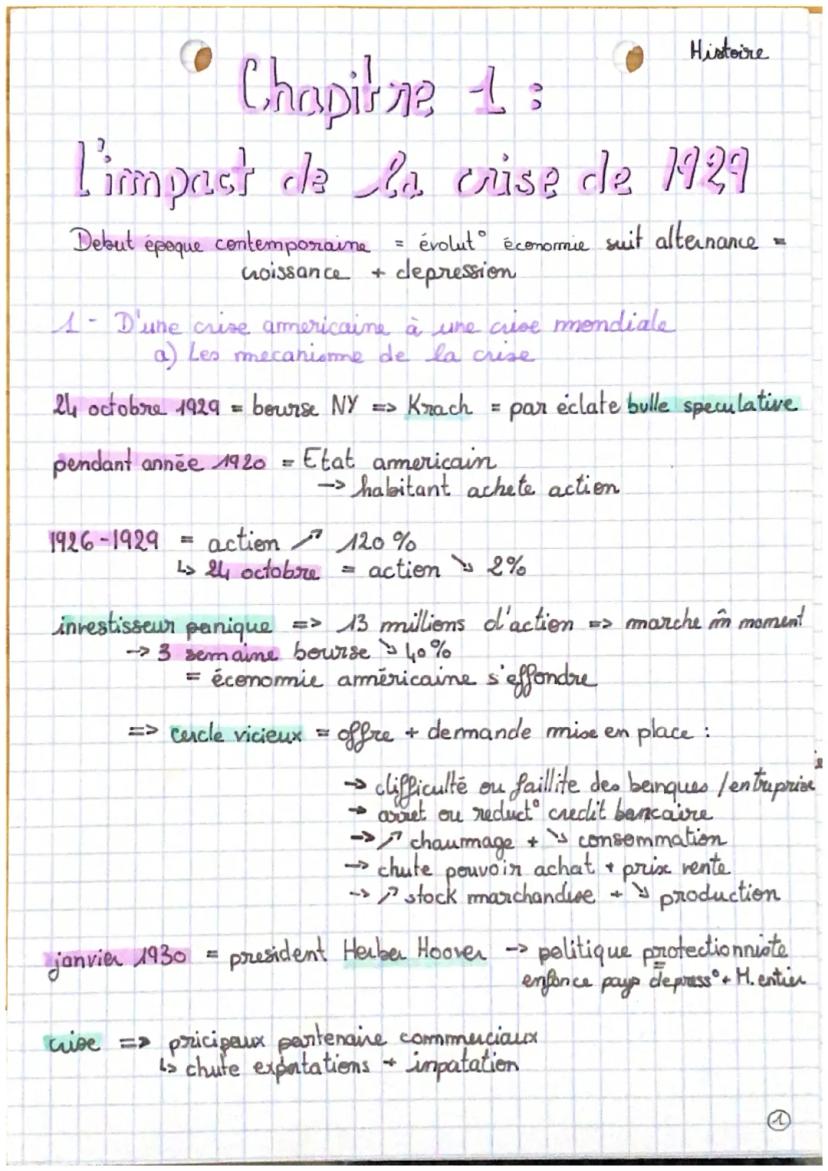 Histoire
Chapitre 1 :
L'impact de la crise de 1929
Debut époque contemporaine = évolut° économie suit alternance =
croissance + depression
1 - D'une crise americaine à une crise mondiale
a) Les mecanisme de la crise
24 octobre 1929 = bourse NY => Krach = par éclate bulle speculative
pendant année 1920 = Etat americain
-> habitant achete action
1926-1929 = action ↗ 120 %
↳ 24 octobre = action ↘ 2%
investisseur panique => 13 millions d'action => marche m̂ moment
-> 3 semaine bourse ↘ 40%
= économie américaine s'effondre
=> cercle vicieux = offre + demande mise en place :
-> difficulté ou faillite des banques / entreprise
-> arret ou reduct° credit bancaire
-> ↗ chaumage + ↘ consommation
-> chute pouvoir achat + prix vente
-> ↗ stock marchandise + ↘ production
janvier 1930 = president Herber Hoover -> politique protectionniste
= enfonce pays depress° + M. entier
crise => pricipaux partenaire commerciaux
↳ chute expotations + inpatation
1